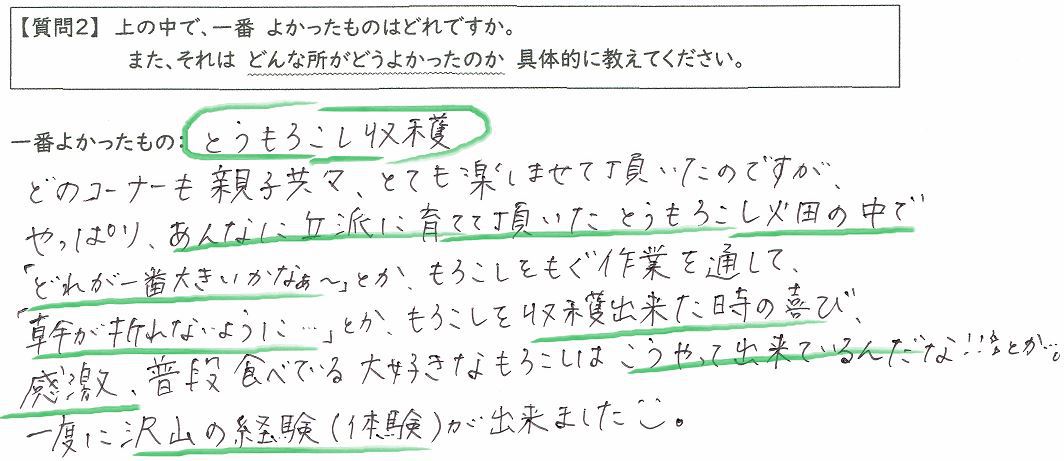 【質問2】 上の中で、一番 よかったものはどれですか。
また、それは どんな所がどうよかったのか 具体的に教えてください。
一番よかったもの: とうもろこし収穫
どのコーナーも親子共々、とても楽しませて頂いたのですが、
やっぱり、あんなに立派に育てて頂いたとうもろこし畑の中で
「どれが一番大きいかなぁ〜」とか、もろこしをもぐ作業を通して、
「幹が折れないように…」とか、もろこしを収穫出来た時の喜び、
感激、普段食べている大好きなもろこしはこうやって出来ているんだな!!とか…。
一度に沢山の経験(体験)が出来ました。